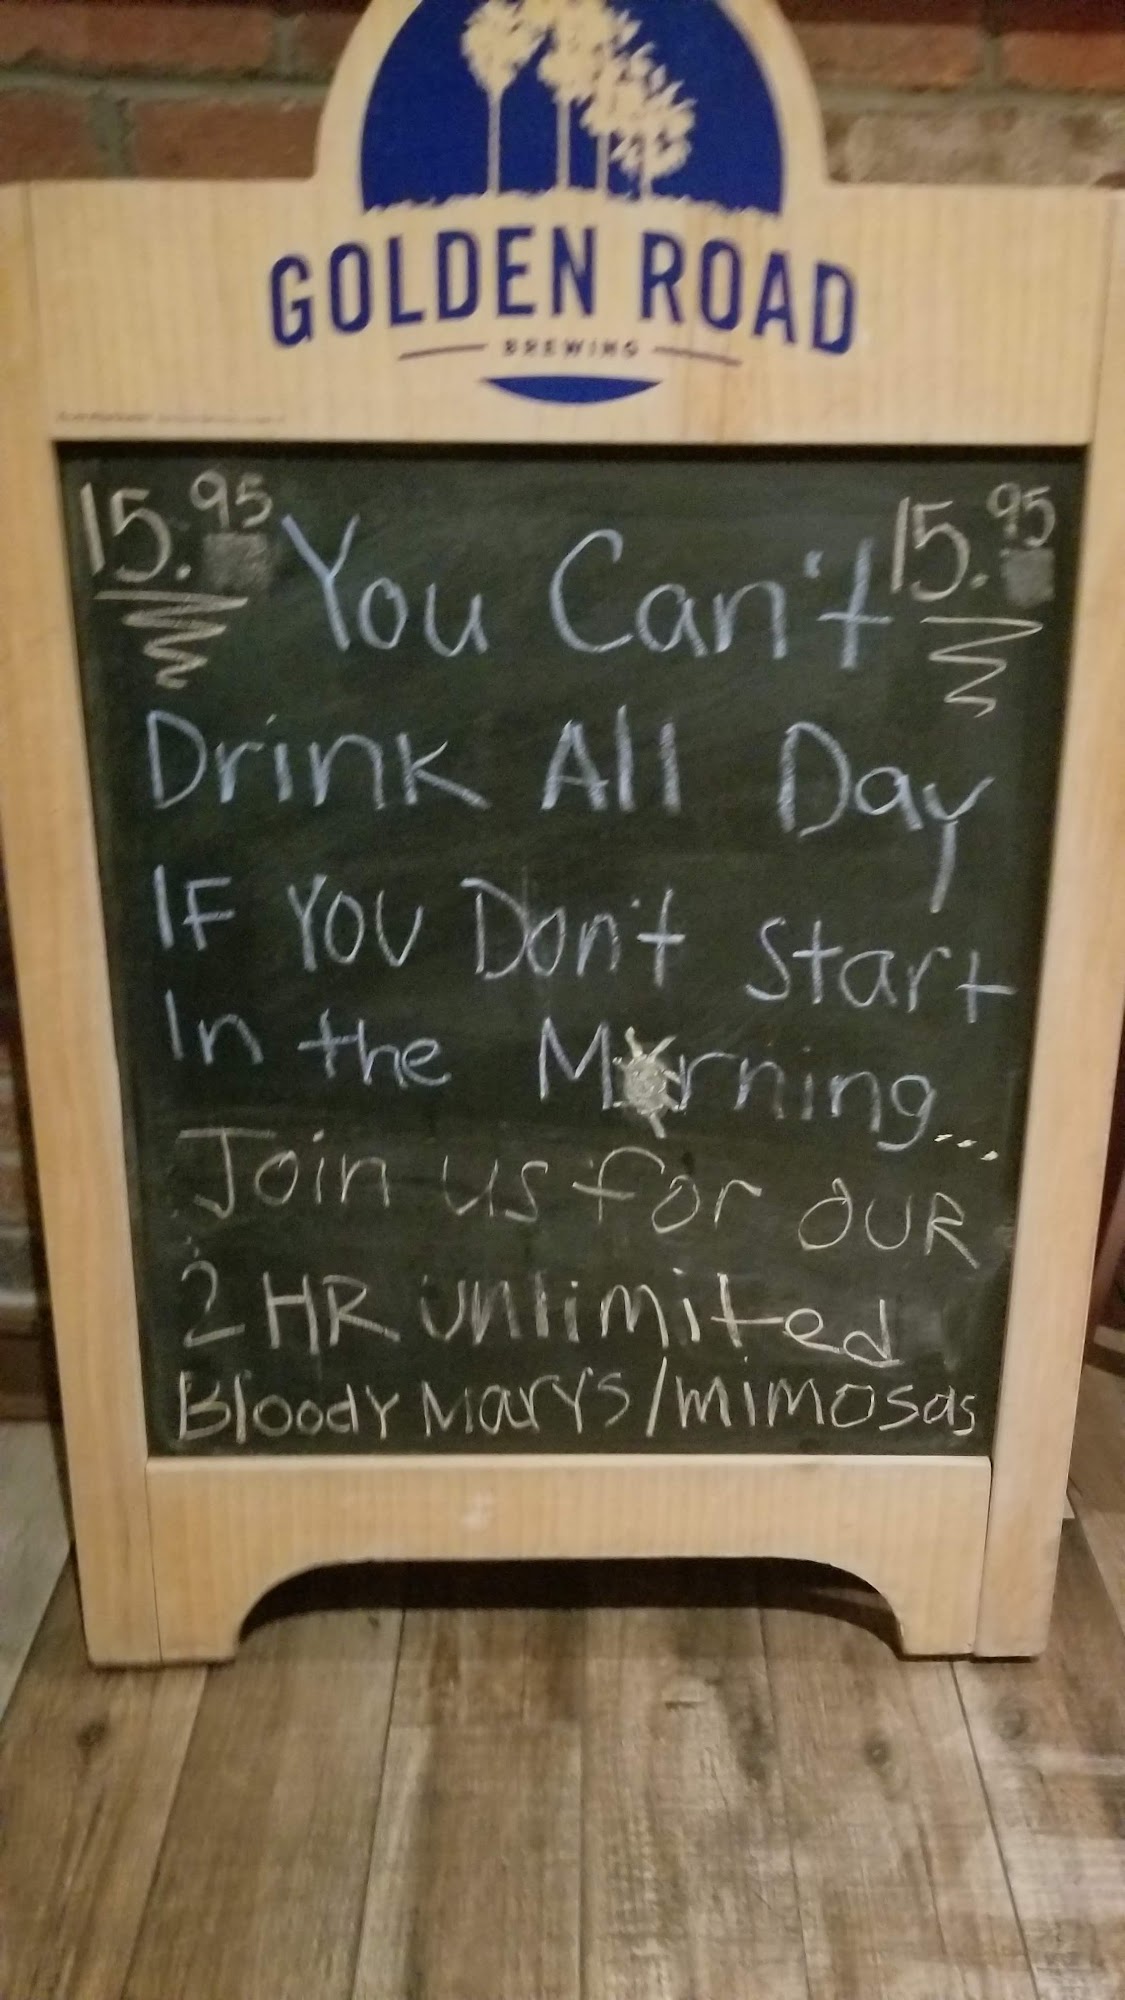 GOLDEN ROAD
BREWING
15.95 You Can't 15.95
Drink All Day
IF YOU Don't Start
In the Morning...
Join us for OUR
2 HR unlimited
Bloody Marys/mimosas